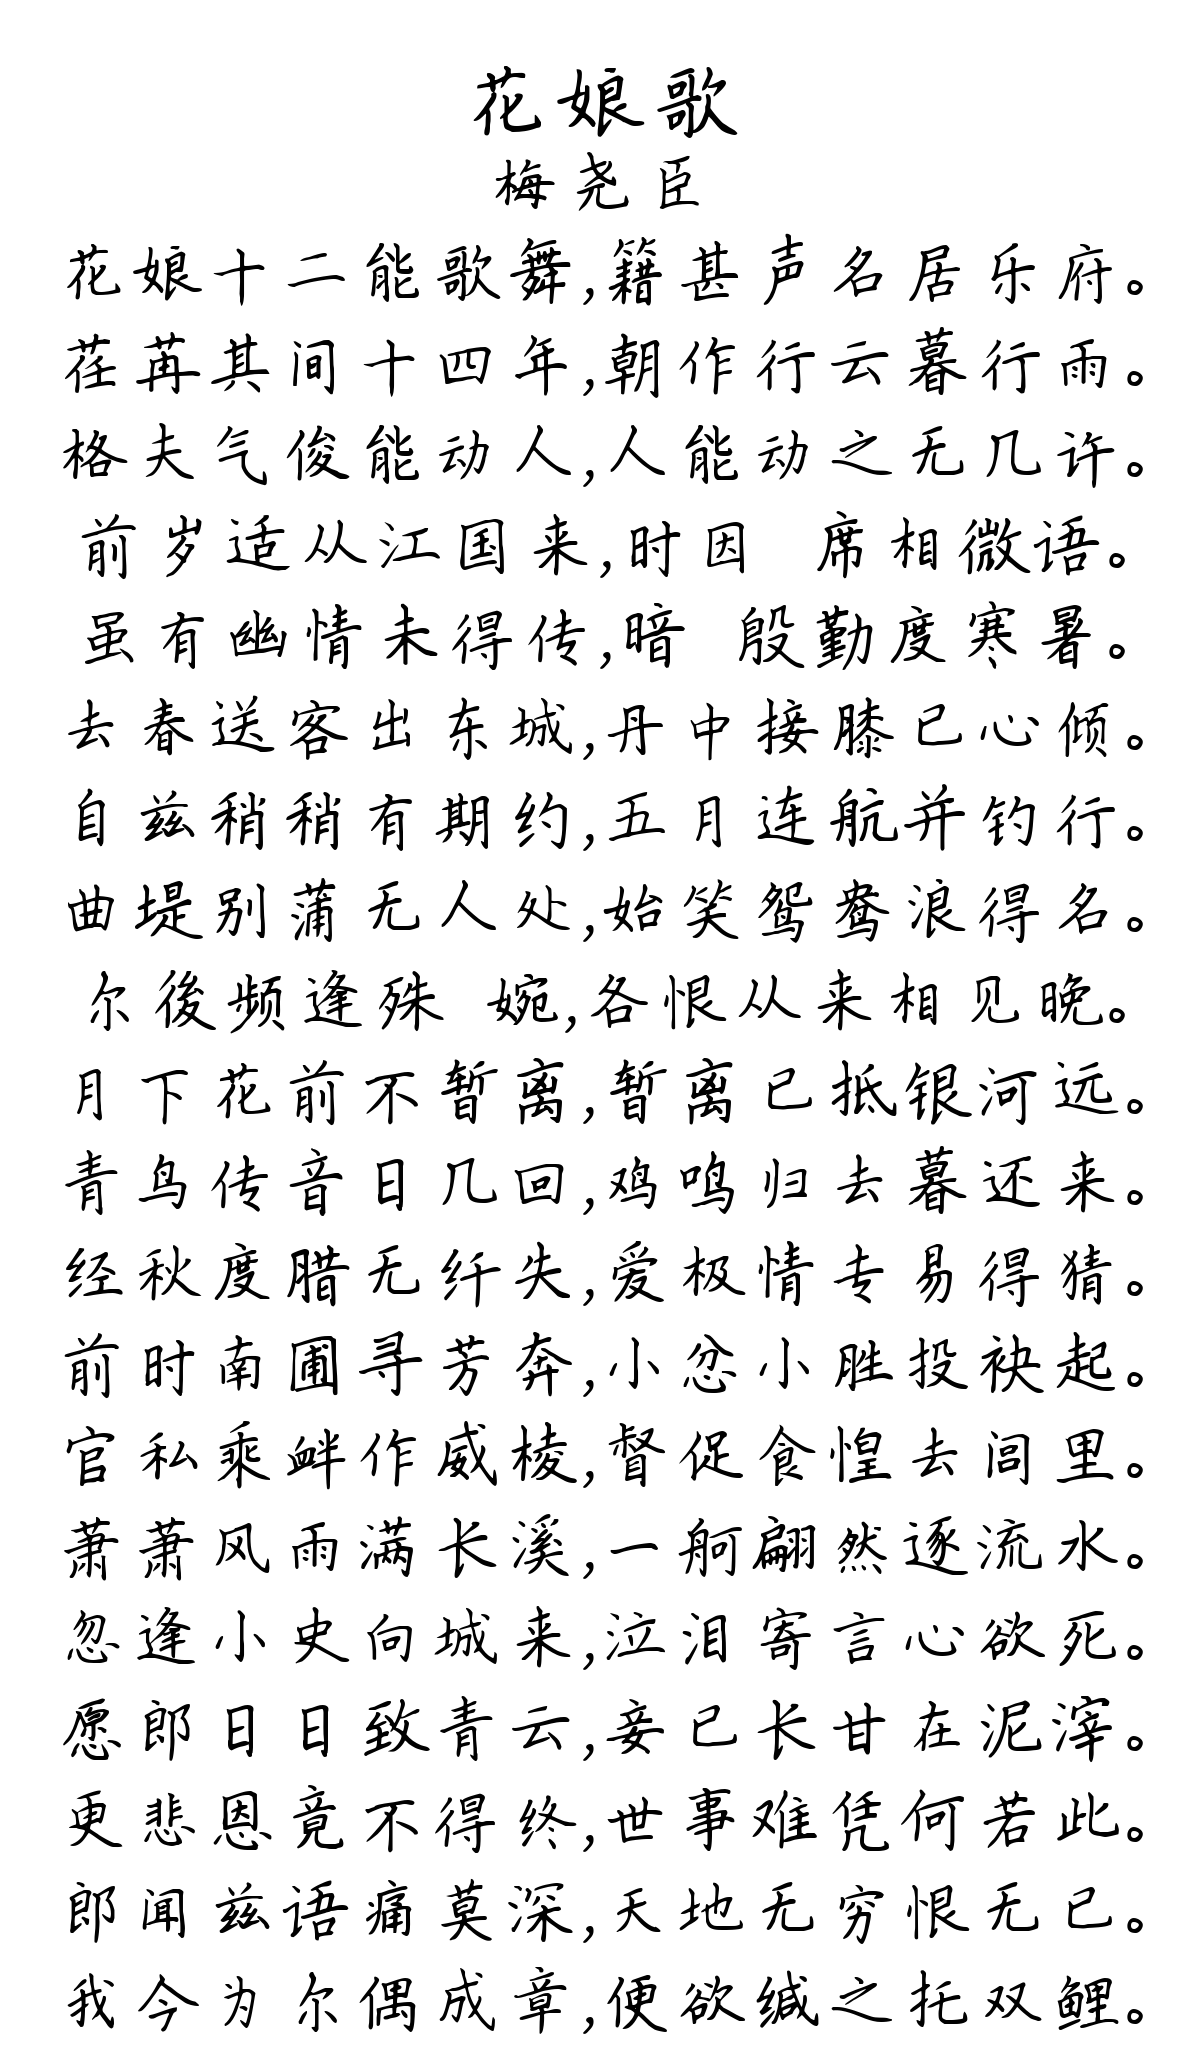 花娘歌
梅尧臣
花娘十二能歌舞,籍甚声名居乐府。
荏苒其间十四年,朝作行云暮行雨。
格夫气俊能动人,人能动之无几许。
前岁适从江国来,时因 席相微语。
虽有幽情未得传,暗 殷勤度寒暑。
去春送客出东城,丹中接膝已心倾。
自兹稍稍有期约,五月连航并钓行。
曲堤别蒲无人处,始笑鸳鸯浪得名。
尔後频逢殊 婉,各恨从来相见晚。
月下花前不暂离,暂离已抵银河远。
青鸟传音日几回,鸡鸣归去暮还来。
经秋度腊无纤失,爱极情专易得猜。
前时南圃寻芳奔,小忿小胜投袂起。
官私乘衅作威棱,督促食惶去闾里。
萧萧风雨满长溪,一舸翩然逐流水。
忽逢小史向城来,泣泪寄言心欲死。
愿郎日日致青云,妾已长甘在泥滓。
更悲恩竟不得终,世事难凭何若此。
郎闻兹语痛莫深,天地无穷恨无已。
我今为尔偶成章,便欲缄之托双鲤。